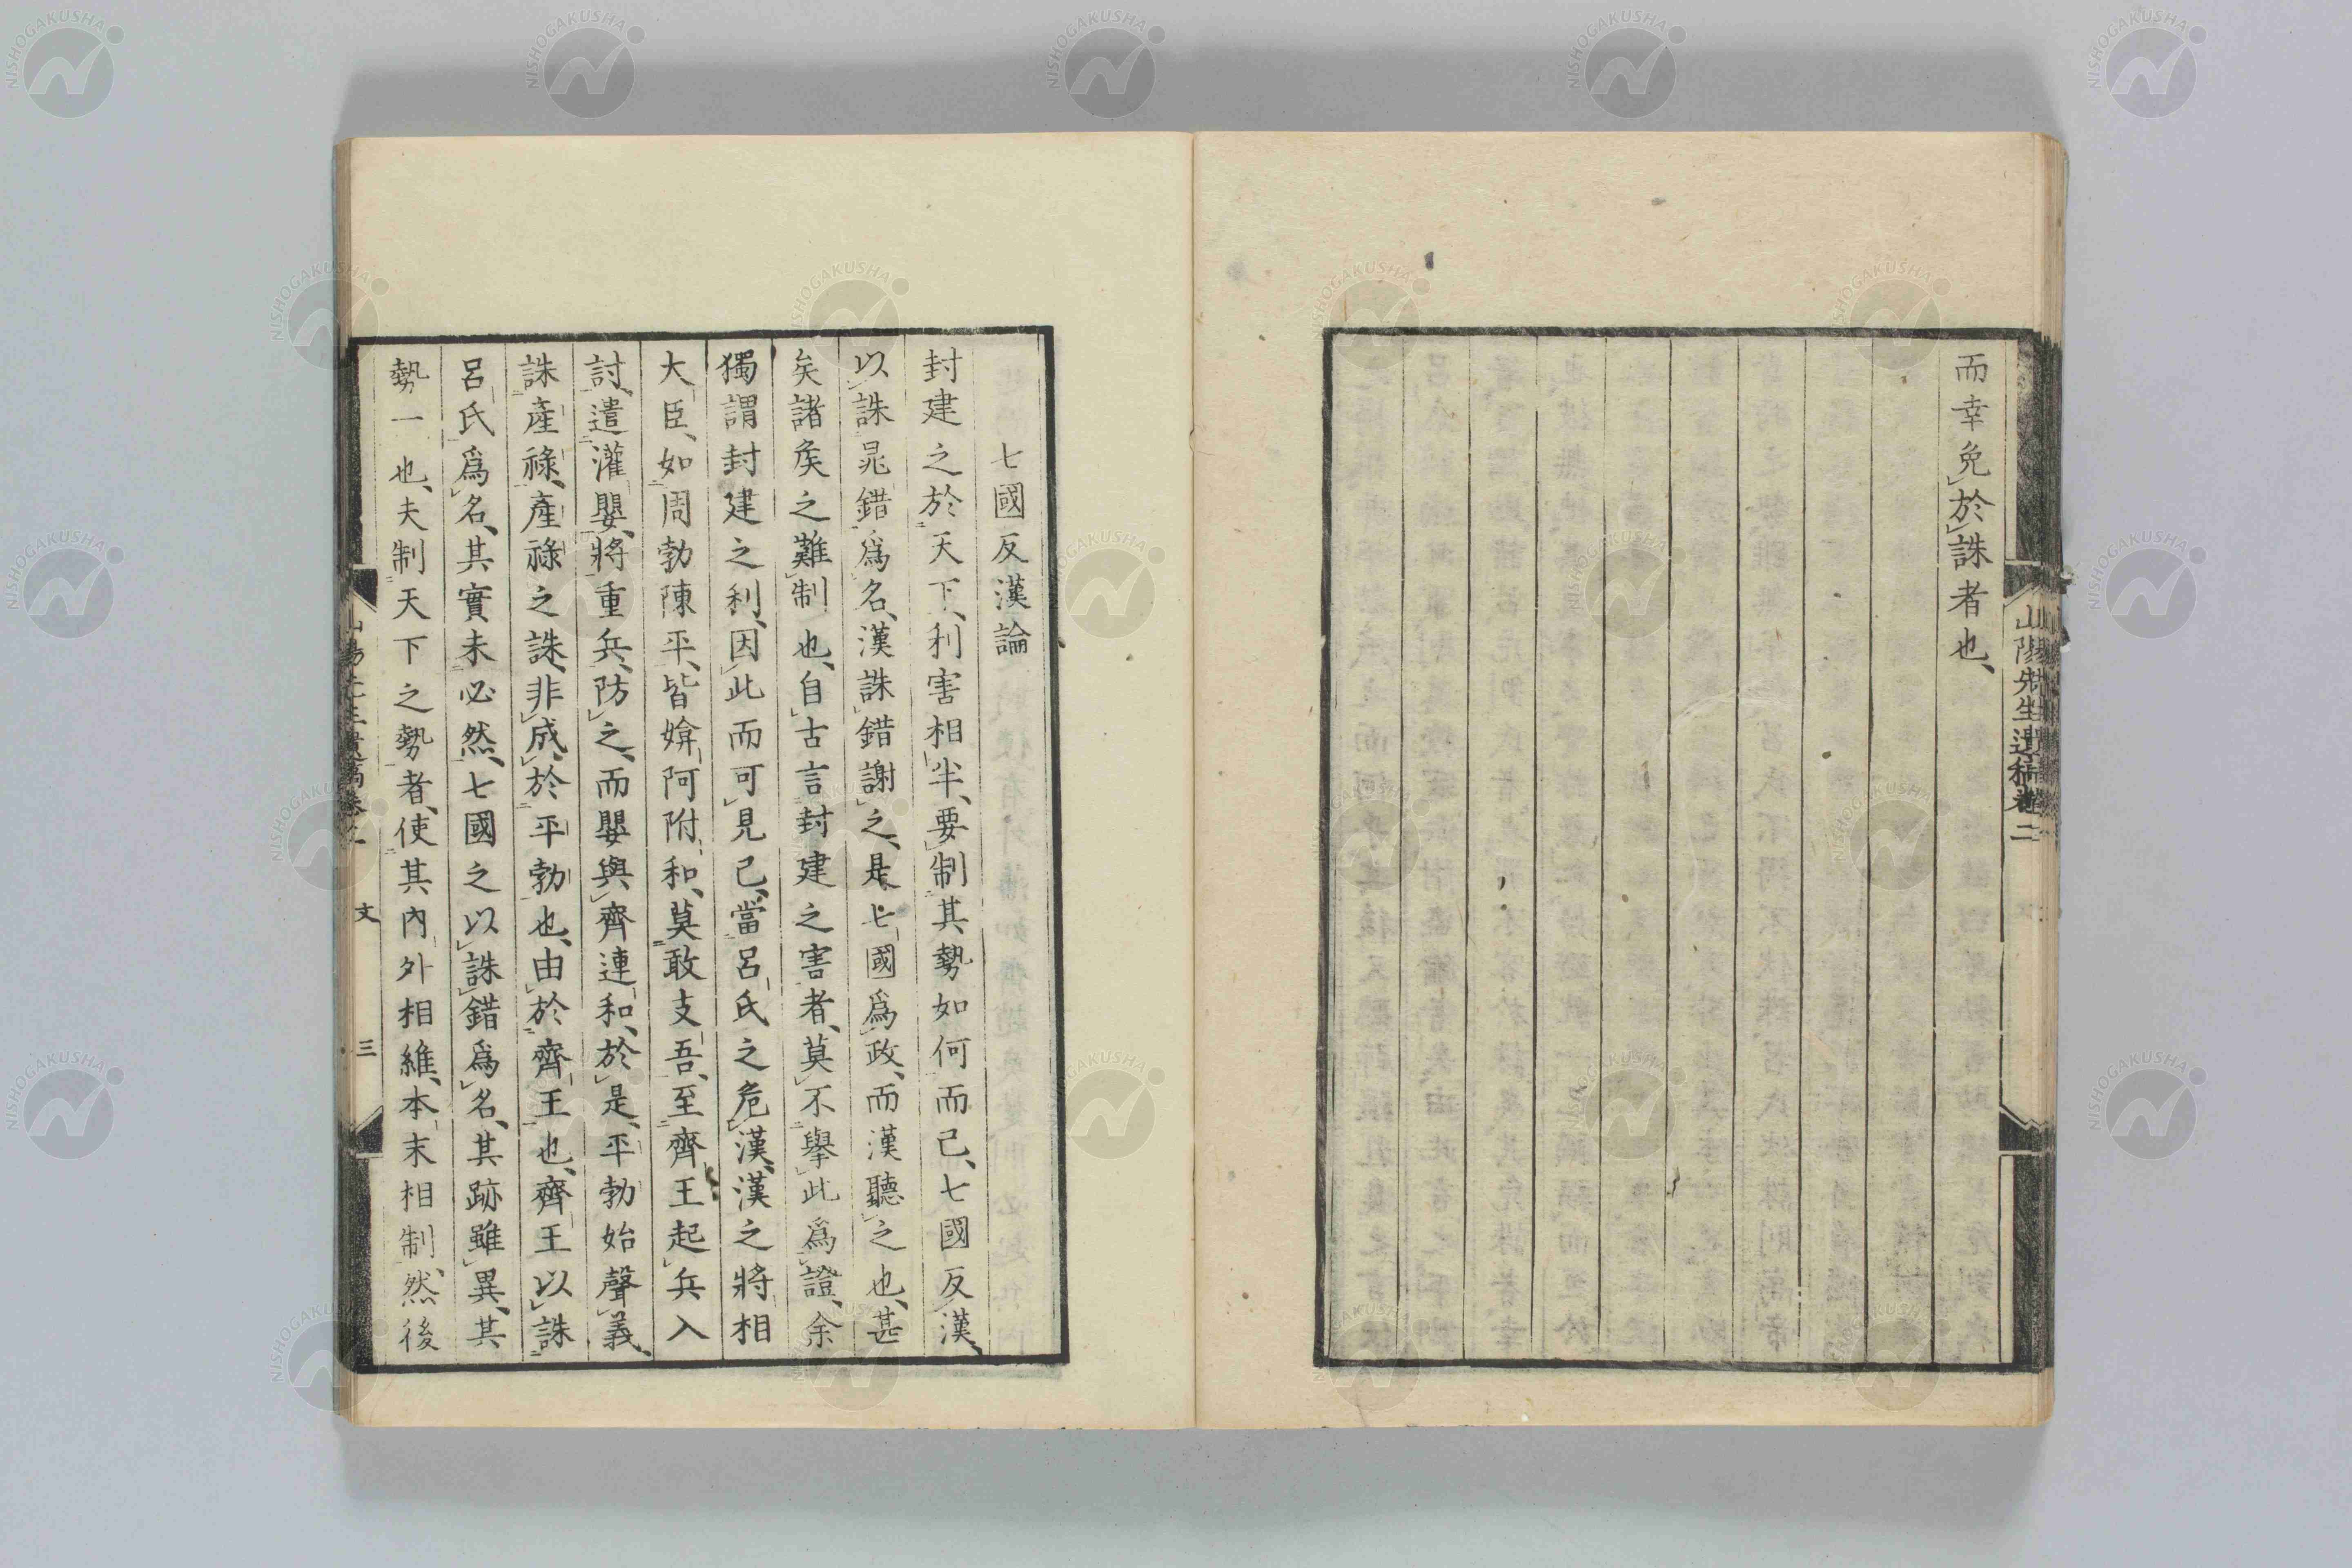 而幸免於誅者也、
山陽先生遺稿卷二
七國反漢論
封建之於天下、利害相半、要制其勢如何而已、七國反漢、
以誅鼂錯爲名、漢誅錯謝之、是七國爲政、而漢聽之也、甚
矣諸矦之難制也、自古言封建之害者、莫不擧此爲證、余
獨謂封建之利、因此而可見已、當呂氏之危漢、漢之將相
大臣、如周勃陳平、皆媕阿附和、莫敢支吾、至齊王起兵入
討、遣灌嬰、將重兵、防之、而嬰與齊連和、於是、平勃始聲義、
誅產祿、產祿之誅、非成於平勃也、由於齊王也、齊王以誅
呂氏爲名、其實未必然、七國之以誅錯爲名、其跡雖異、其
勢一也、夫制天下之勢者、使其內外相維、本末相制、然後
山陽先生遺稿卷二 文 三
NISHOGAKUSHA